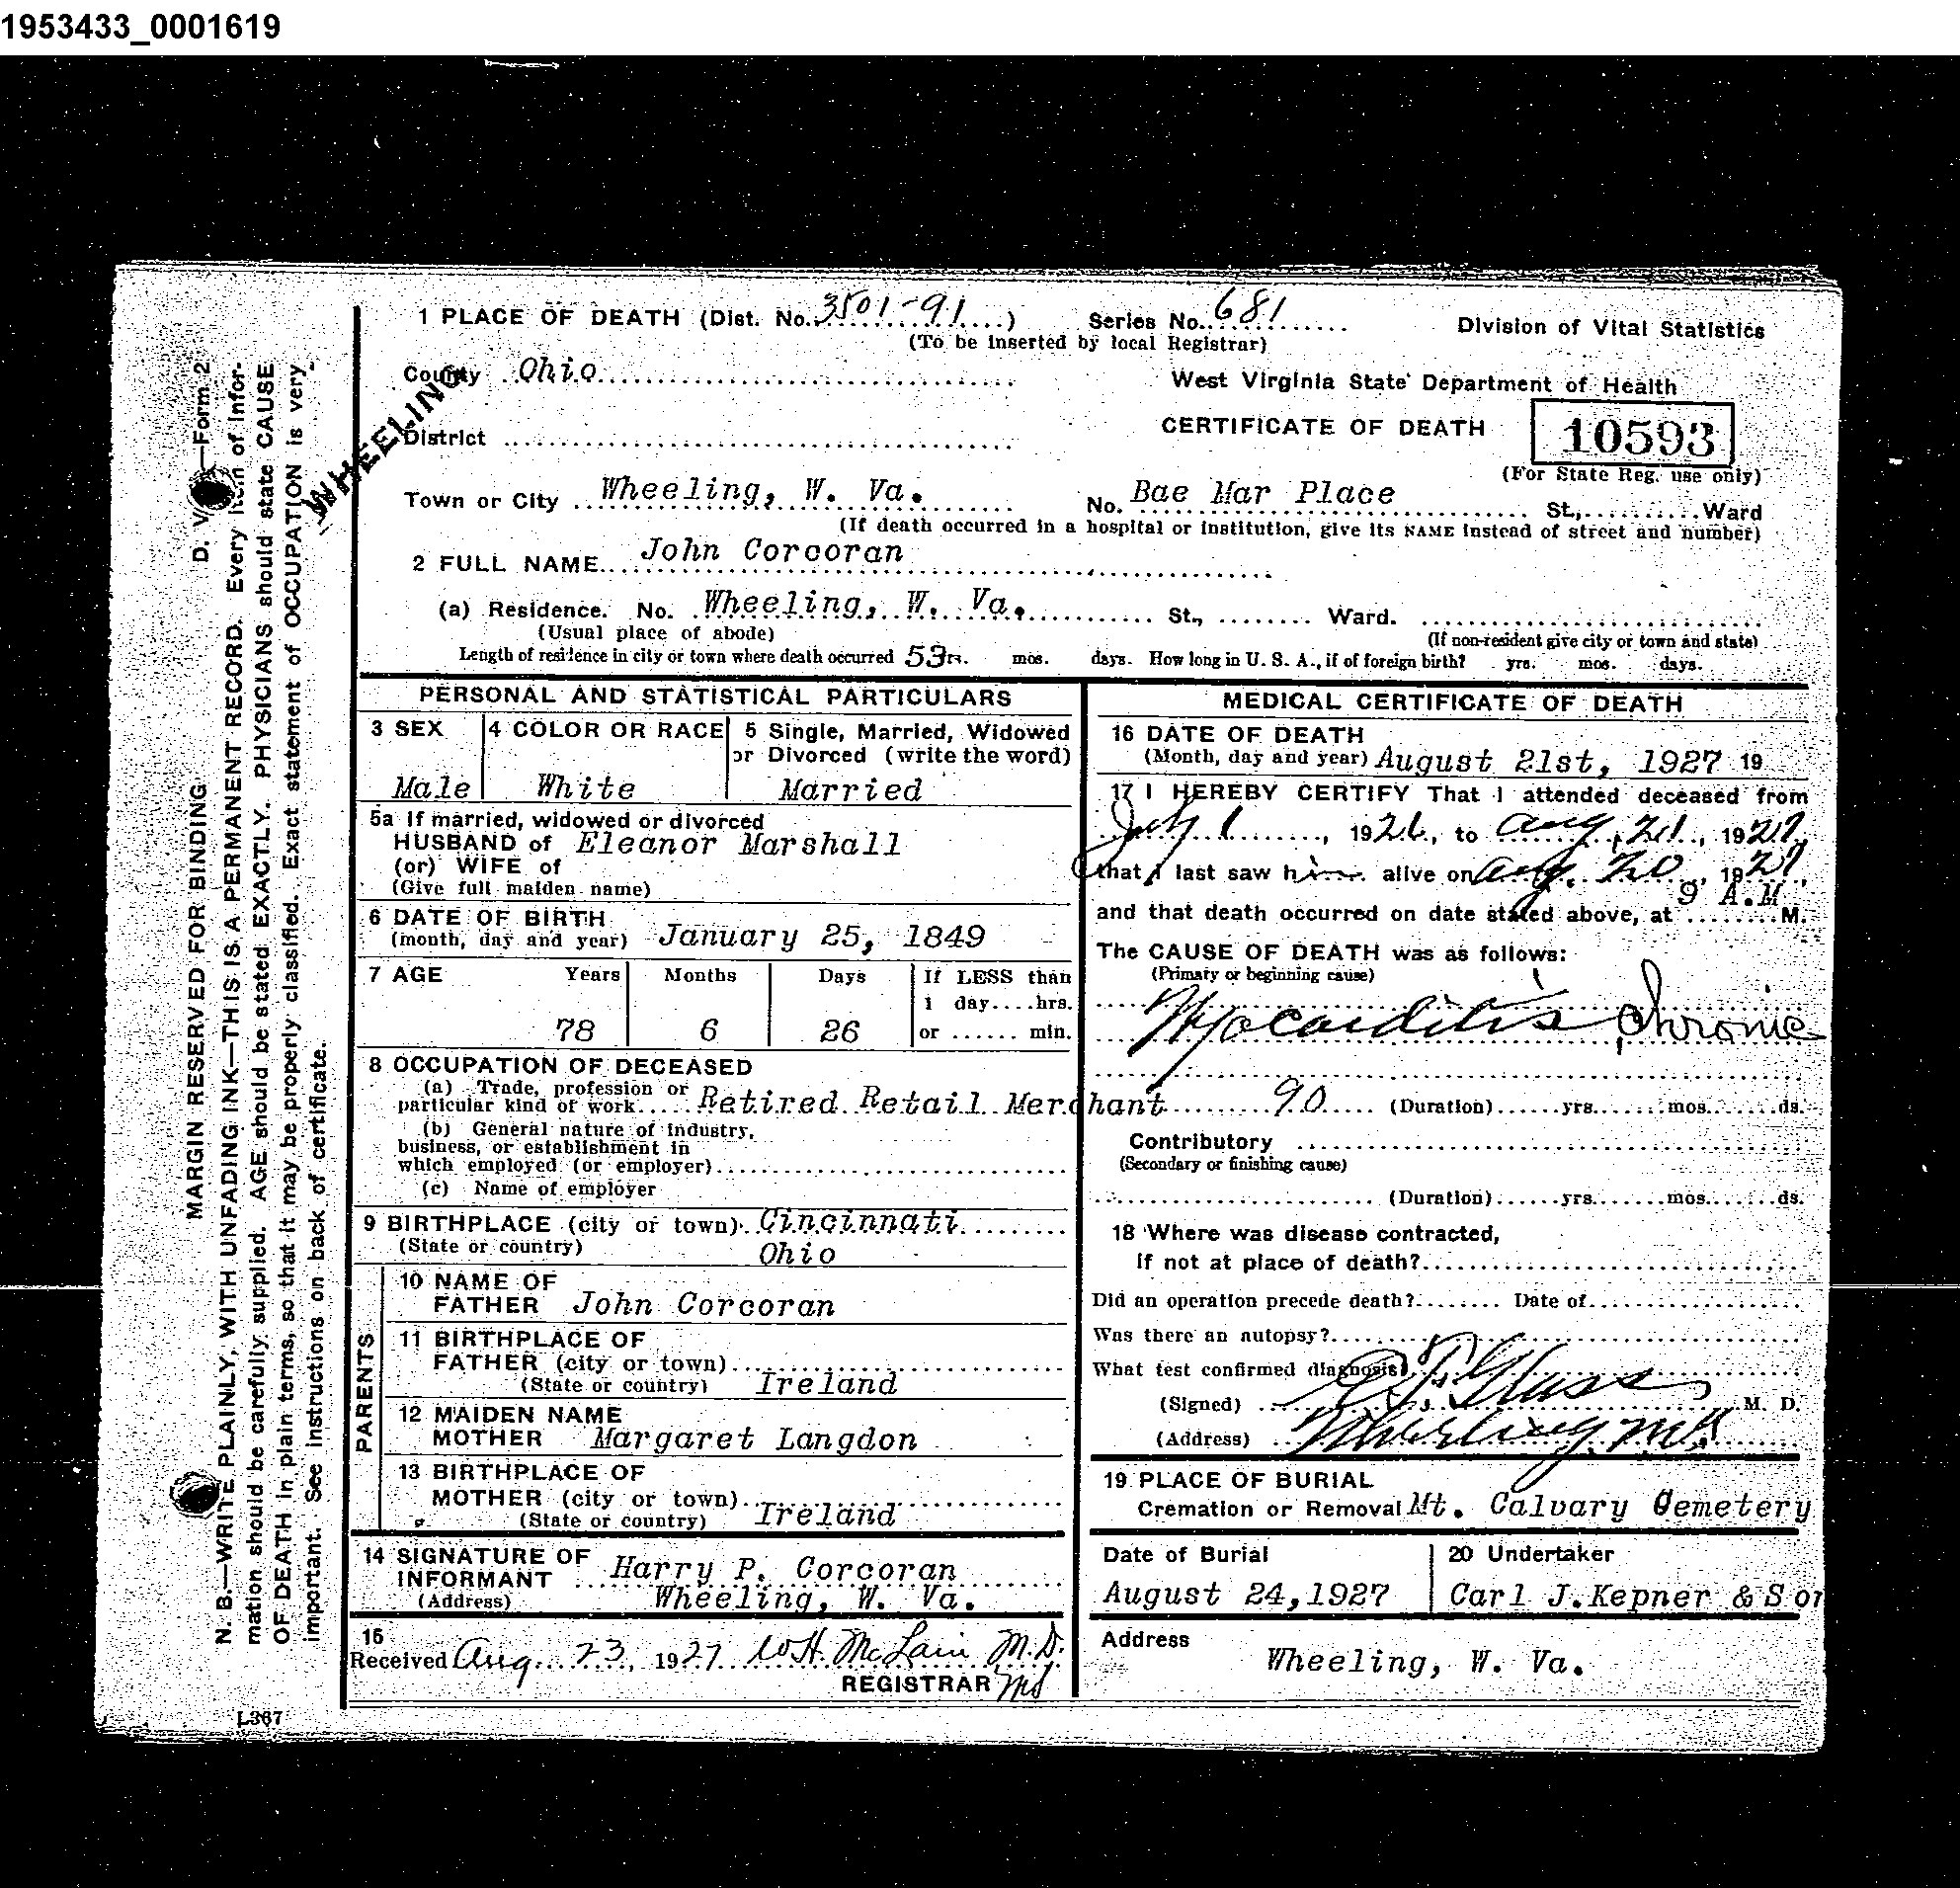 1953433_0001619
1 PLACE OF DEATH (Dist. No. 3501-91) Series No. 681 Division of Vital Statistics
(To be inserted by local Registrar)
County Ohio West Virginia State Department of Health
WHEELING
District CERTIFICATE OF DEATH 10593
(For State Reg. use only)
Town or City Wheeling, W. Va. No. Bae Mar Place St., Ward
(If death occurred in a hospital or institution, give its NAME instead of street and number)
2 FULL NAME John Corcoran
(a) Residence. No. Wheeling, W. Va. St., Ward.
(Usual place of abode) (If non-resident give city or town and state)
Length of residence in city or town where death occurred 53 yrs. mos. days. How long in U. S. A., if of foreign birth? yrs. mos. days.
PERSONAL AND STATISTICAL PARTICULARS
3 SEX 4 COLOR OR RACE 5 Single, Married, Widowed
or Divorced (write the word)
Male White Married
5a If married, widowed or divorced
HUSBAND of Eleanor Marshall
(or) WIFE of
(Give full maiden name)
6 DATE OF BIRTH
(month, day and year) January 25, 1849
7 AGE Years Months Days If LESS than
1 day....hrs.
78 6 26 or ...... min.
8 OCCUPATION OF DECEASED
(a) Trade, profession or
particular kind of work Retired Retail Merchant
(b) General nature of industry,
business, or establishment in
which employed (or employer)
(c) Name of employer
9 BIRTHPLACE (city or town) Cincinnati
(State or country) Ohio
PARENTS
10 NAME OF
FATHER John Corcoran
11 BIRTHPLACE OF
FATHER (city or town)
(State or country) Ireland
12 MAIDEN NAME
MOTHER Margaret Langdon
13 BIRTHPLACE OF
MOTHER (city or town)
(State or country) Ireland
14 SIGNATURE OF
INFORMANT Harry P. Corcoran
(Address) Wheeling, W. Va.
15
Received Aug 23, 1927 W.H. McLain M.D.
REGISTRAR
MEDICAL CERTIFICATE OF DEATH
16 DATE OF DEATH
(Month, day and year) August 21st, 1927 19
17 I HEREBY CERTIFY That I attended deceased from
July 1, 1926, to Aug. 21, 1927,
that I last saw him alive on Aug. 20, 1927,
9 A.M
and that death occurred on date stated above, at ........M.
The CAUSE OF DEATH was as follows:
(Primary or beginning cause)
Myocarditis Chronic
90 (Duration)......yrs.......mos.......ds.
Contributory
(Secondary or finishing cause)
(Duration)......yrs.......mos.......ds.
18 Where was disease contracted,
if not at place of death?
Did an operation precede death? Date of
Was there an autopsy?
What test confirmed diagnosis?
(Signed) Glass M. D.
(Address) Wheeling
19 PLACE OF BURIAL
Cremation or Removal Mt. Calvary Cemetery
Date of Burial 20 Undertaker
August 24,1927 Carl J.Kepner & Son
Address
Wheeling, W. Va.
MARGIN RESERVED FOR BINDING
D. V. —Form 2
N. B.—WRITE PLAINLY, WITH UNFADING INK—THIS IS A PERMANENT RECORD. Every item of infor-
mation should be carefully supplied. AGE should be stated EXACTLY. PHYSICIANS should state CAUSE
OF DEATH in plain terms, so that it may be properly classified. Exact statement of OCCUPATION is very
important. See instructions on back of certificate.
L367